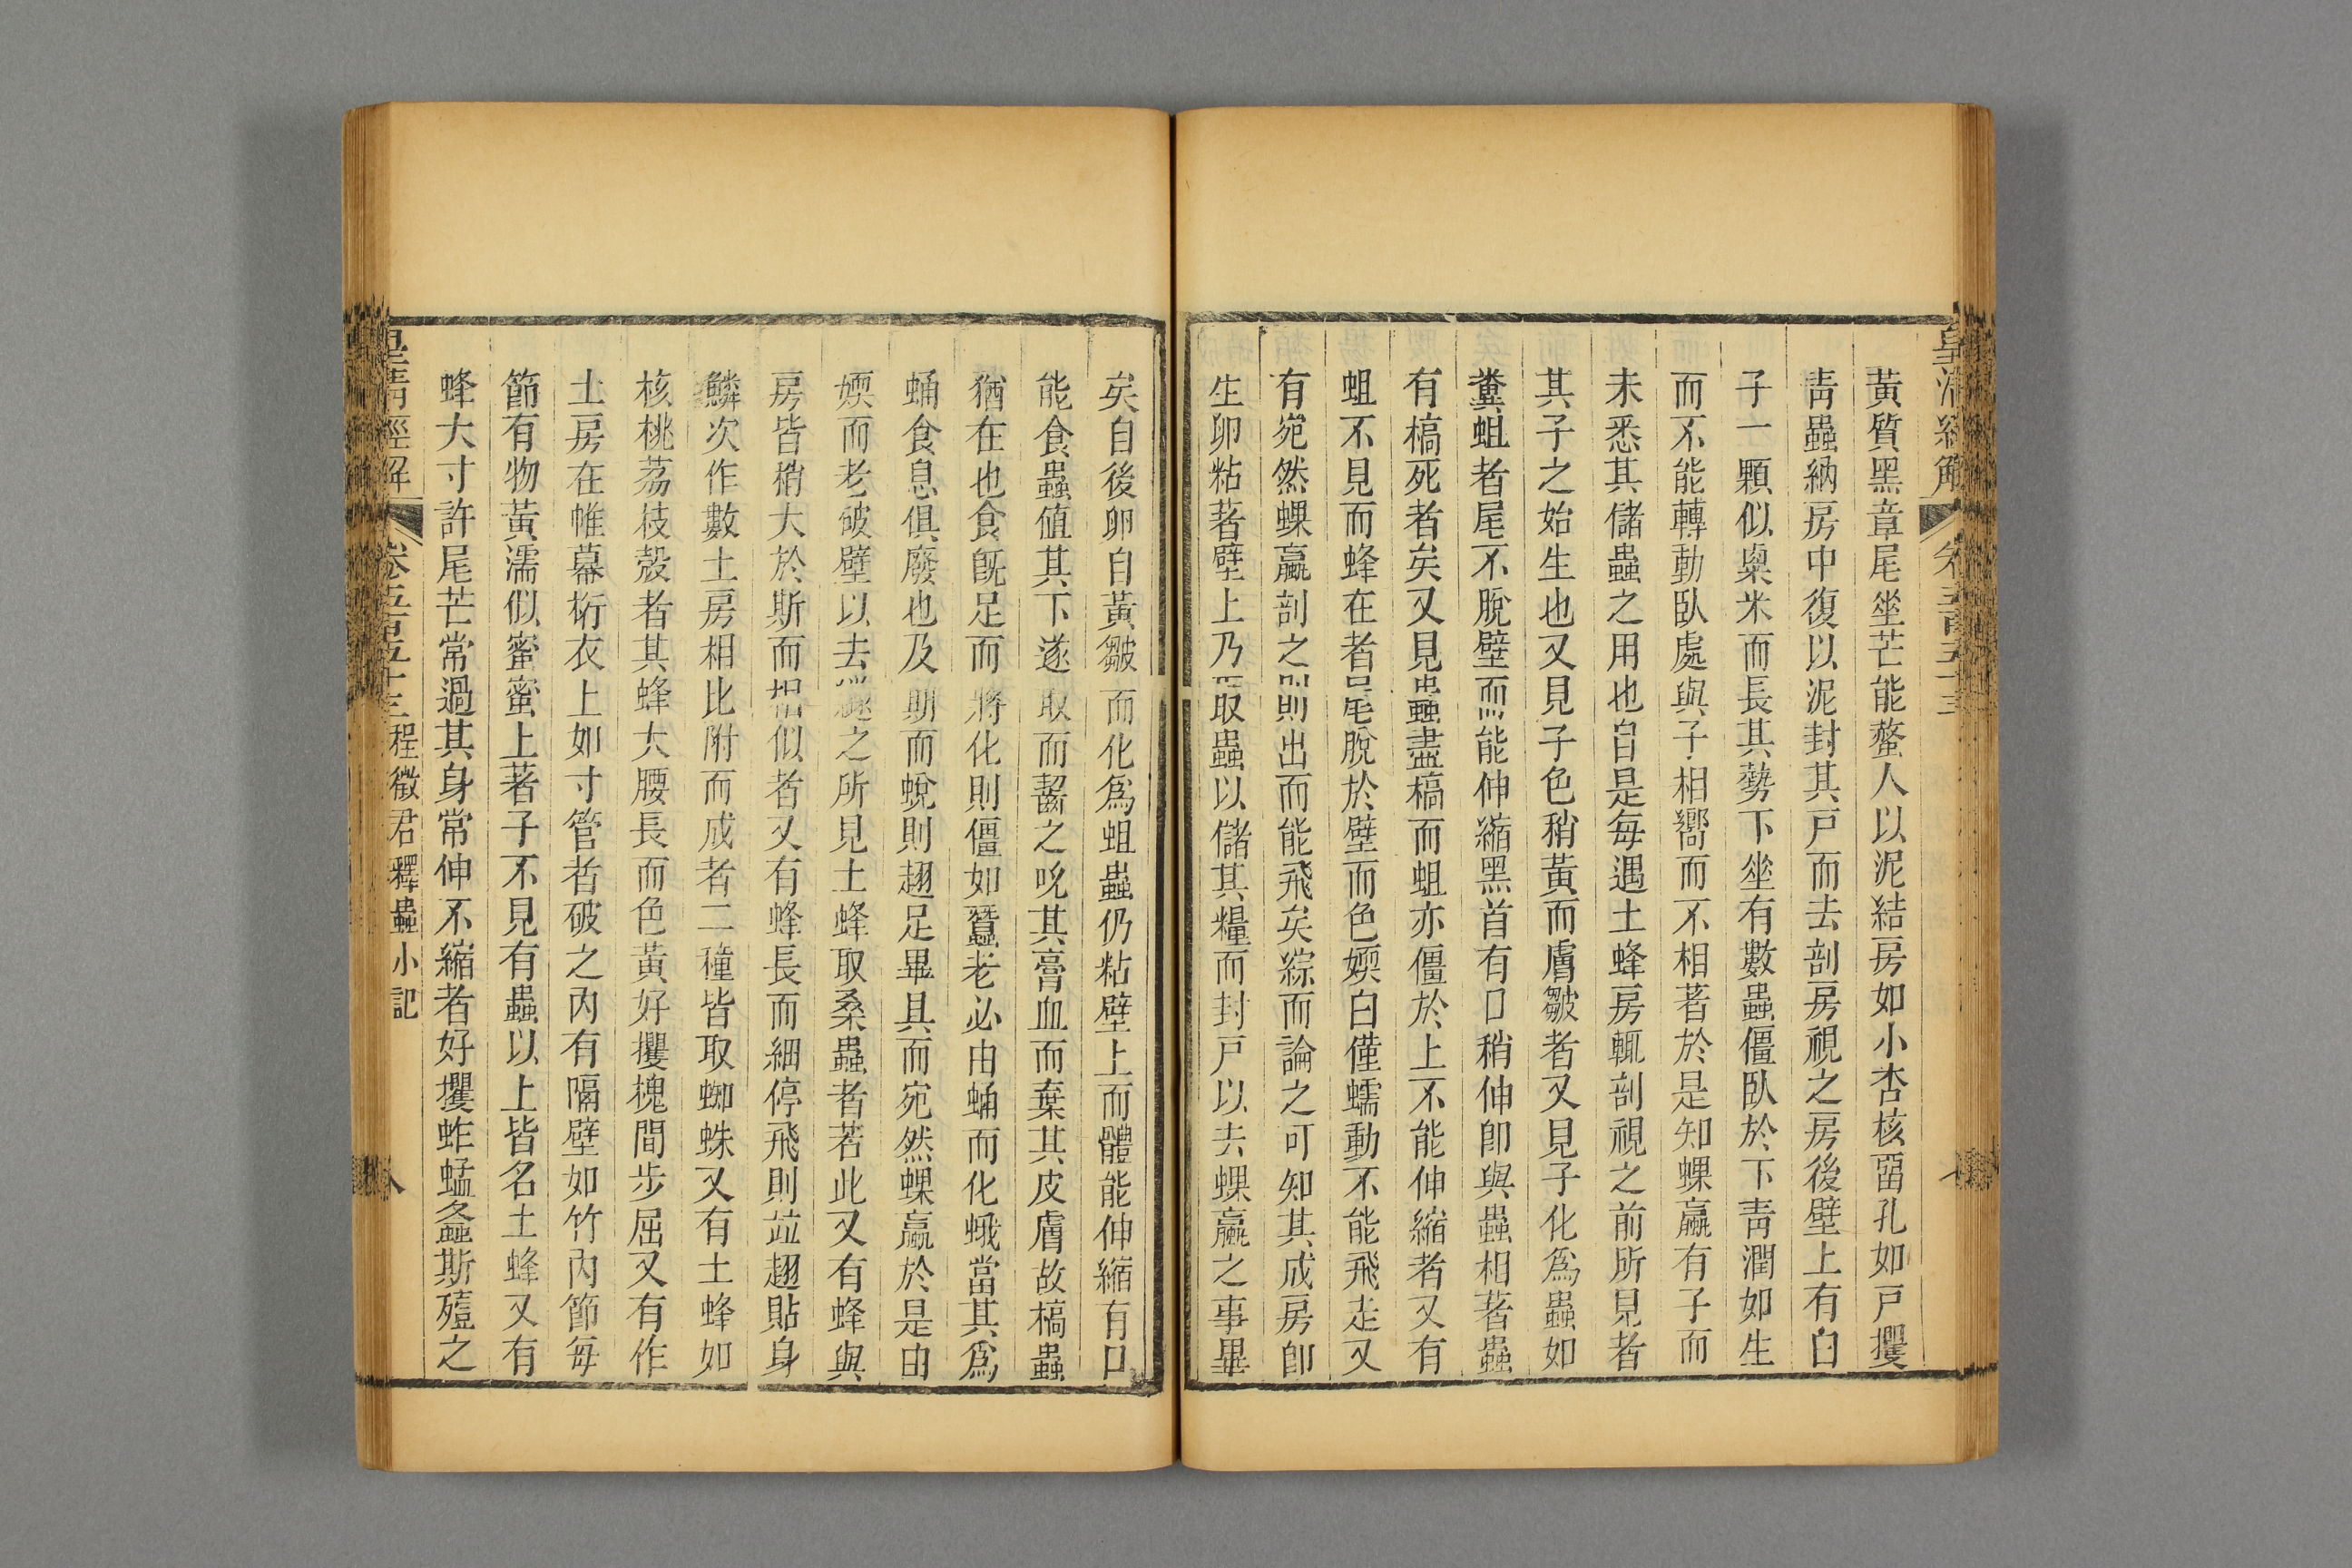 皇淸經解 卷五百五十三
黃質黑章尾坐芒能螫人以泥結房如小杏核留孔如戸攫
靑蟲納房中復以泥封其戸而去剖房視之房後壁上有白
子一顆似粟米而長其勢下坐有數蟲僵臥於下靑潤如生
而不能轉動臥處與子相嚮而不相著於是知蜾蠃有子而
未悉其儲蟲之用也自是每遇土蜂房輒剖視之前所見者
其子之始生也又見子色稍黃而膚皺者又見子化爲蟲如
糞蛆者尾不脫壁而能伸縮黑首有口稍伸卽與蟲相著蟲
有槁死者矣又見蟲盡槁而蛆亦僵於上不能伸縮者又有
蛆不見而蜂在者尾脫於壁而色㜛白僅蠕動不能飛走又
有宛然蜾蠃剖之則出而能飛矣綜而論之可知其成房卽
生卵粘著壁上乃取蟲以儲其糧而封戸以去蜾蠃之事畢
矣自後卵自黃皺而化爲蛆蟲仍粘壁上而體能伸縮有口
能食蟲値其下遂取而齧之吮其膏血而棄其皮膚故槁蟲
猶在也食旣足而將化則僵如蠶老必由蛹而化蛾當其爲
蛹食息俱廢也及期而蛻則翅足畢具而宛然蜾蠃於是由
㜛而老破壁以去之所見土蜂取桑蟲者若此又有蜂與
房皆稍大於斯而相似者又有蜂長而細停飛則竝翅貼身
鱗次作數土房相比附而成者二種皆取蜘蛛又有土蜂如
核桃荔枝殼者其蜂大腰長而色黃好攫槐間步屈又有作
土房在帷幕桁衣上如寸管者破之內有隔壁如竹內節每
節有物黃濡似蜜蜜上著子不見有蟲以上皆名土蜂又有
蜂大寸許尾芒常過其身常伸不縮者好攫蚱蜢螽斯殪之
皇淸經解 卷五百五十三 程徵君釋蟲小記 八